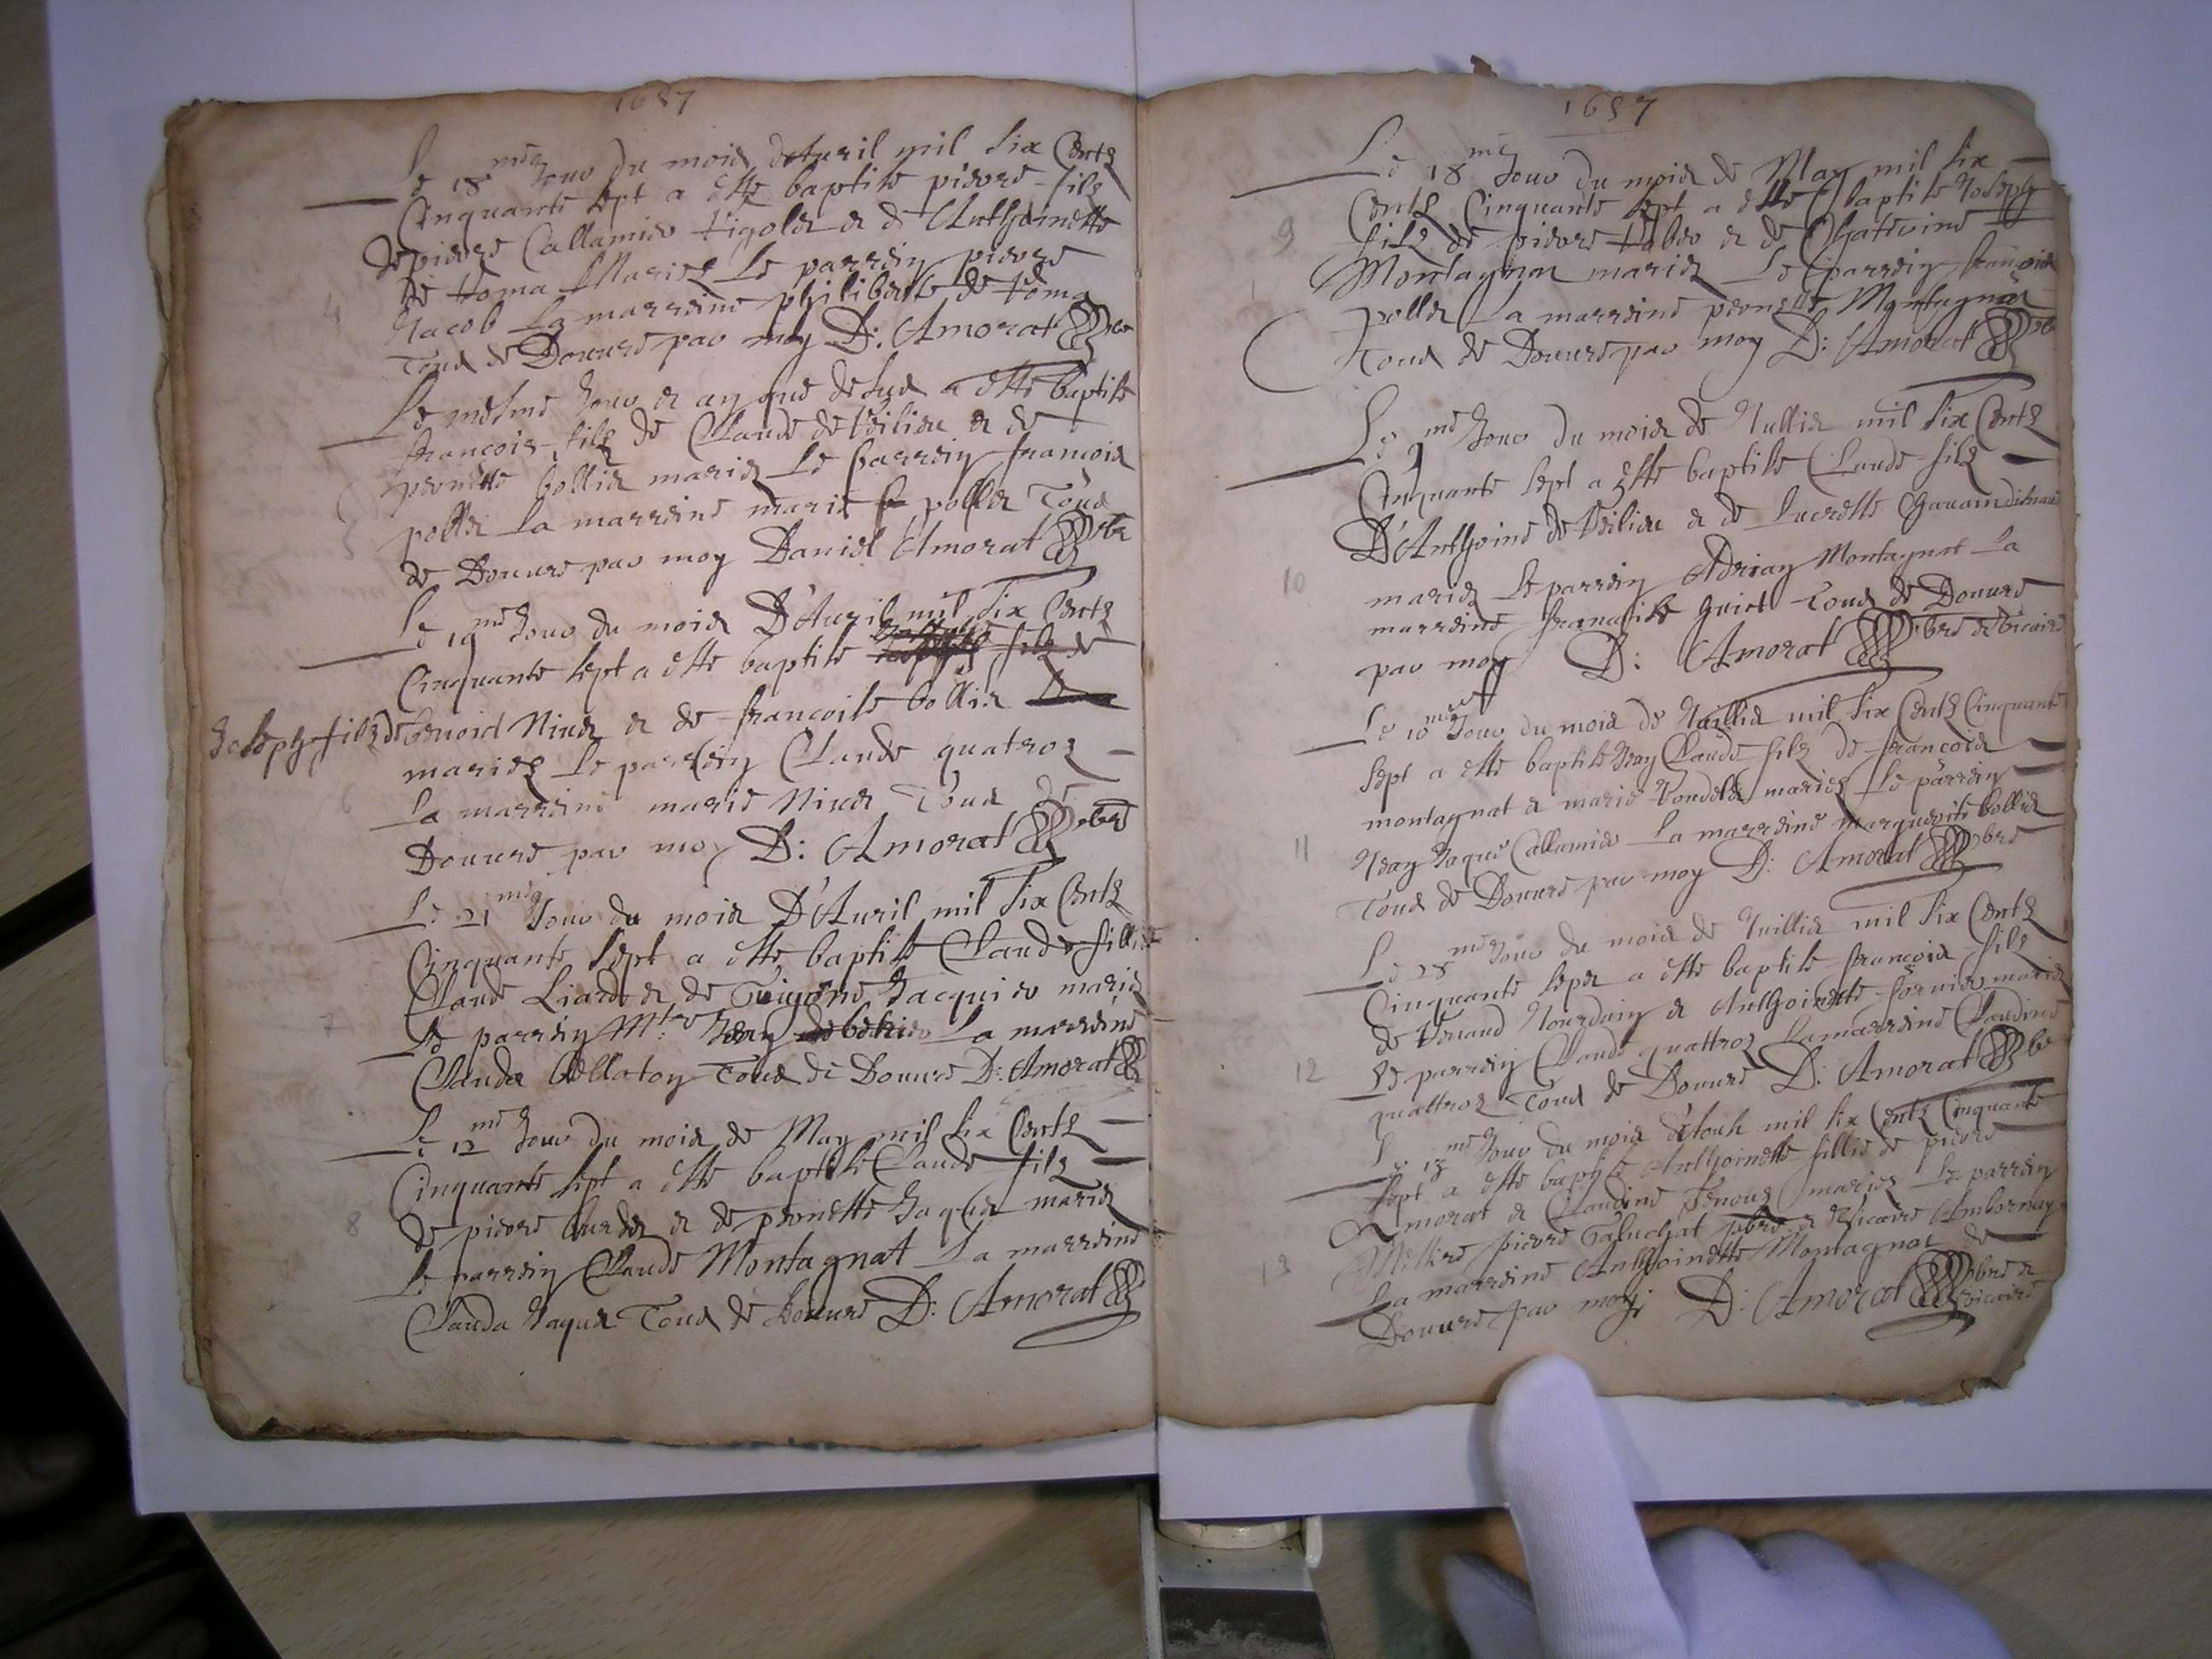 1657
Le 18me Jour du mois d'Auril mil six Centz
Cinquante sept a este baptise pierre filz
de pierre Callamier et de Anthoinette
de Roma Mariez Le parrein pierre
Jacob La marreine philiberte de Roma
Tous de Douure par moy D: Amorat pbre
Le mesme Jour et an que desus a este baptise
francois filz de Claude de Veilieu et de
pernette bollia mariez Le parrein francois
pollet La marreine marie pollet Tous
de Douure par moy Daniel Amorat pbre
Le 19me Jour du mois D'Auril mil six Centz
Cinquante sept a este baptise filz de
Joseph filz de benoid Niud et de francoise bollia
mariez Le parrein Claude quatroz
La marreine marie Niud Tous de
Douure par moy D: Amorat pbre
Le 21me Jour du mois D'Auril mil six Centz
Cinquante sept a este baptise Clauda fillie
Claude Liard et de Jacquier mariez
Le parrein Mtre Jean La marreine
Clauda Collaton Tous de Douure D: Amorat
Le 12me Jour du mois de May mil six Centz
Cinquante sept a este baptise Claude filz
de pierre burdet et de pernette Jaquet mariez
Le parrein Claude Montagnat La marreine
Clauda Jaquet Tous de Douure D: Amorat
4
5
6
7
8
1657
Le 18me Jour du mois de May mil six
Centz Cinquante sept a este baptise Joseph
filz de pierre et de Chaterine
Montagnat mariez Le parrein francois
pollet La marreine pernette Montagnat
Tous de Douure par moy D: Amorat pbre
Le 9me Jour du mois de Jullia mil six Centz
Cinquante sept a este baptise Claude filz
D'Anthoine de Veilieu et de Lucresse
mariez Le parrein Adrian Montagnat La
marreine francoise guiet Tous de Douure
par moy D: Amorat pbre et vicaire
Le 10me Jour du mois de Juillia mil six Centz Cinquante
sept a este baptise Jean Claude filz de francois
montagnat et marie mariez Le parrein
Jean Jaque Callamier La marreine marguerite bollia
Tous de Douure par moy D: Amorat pbre
Le 28me Jour du mois de Juillia mil six Centz
Cinquante sept a este baptise francois filz
de Renaud Jourdain et Anthoinette fornier mariez
Le parrein Claude quattroz La marreine Claudine
quattroz Tous de Douure D: Amorat pbre
Le 13me Jour du mois d'Aoust mil six Centz Cinquante
sept a este baptise Anthoinette fillie de pierre
Amorat et Claudine mariez Le parrein
Messire pierre Taluchat pbre et vicaire Ambornay
La marreine Anthoinette Montagnat de
Douure par moy D: Amorat pbre et
vicaire
9
10
11
12
13